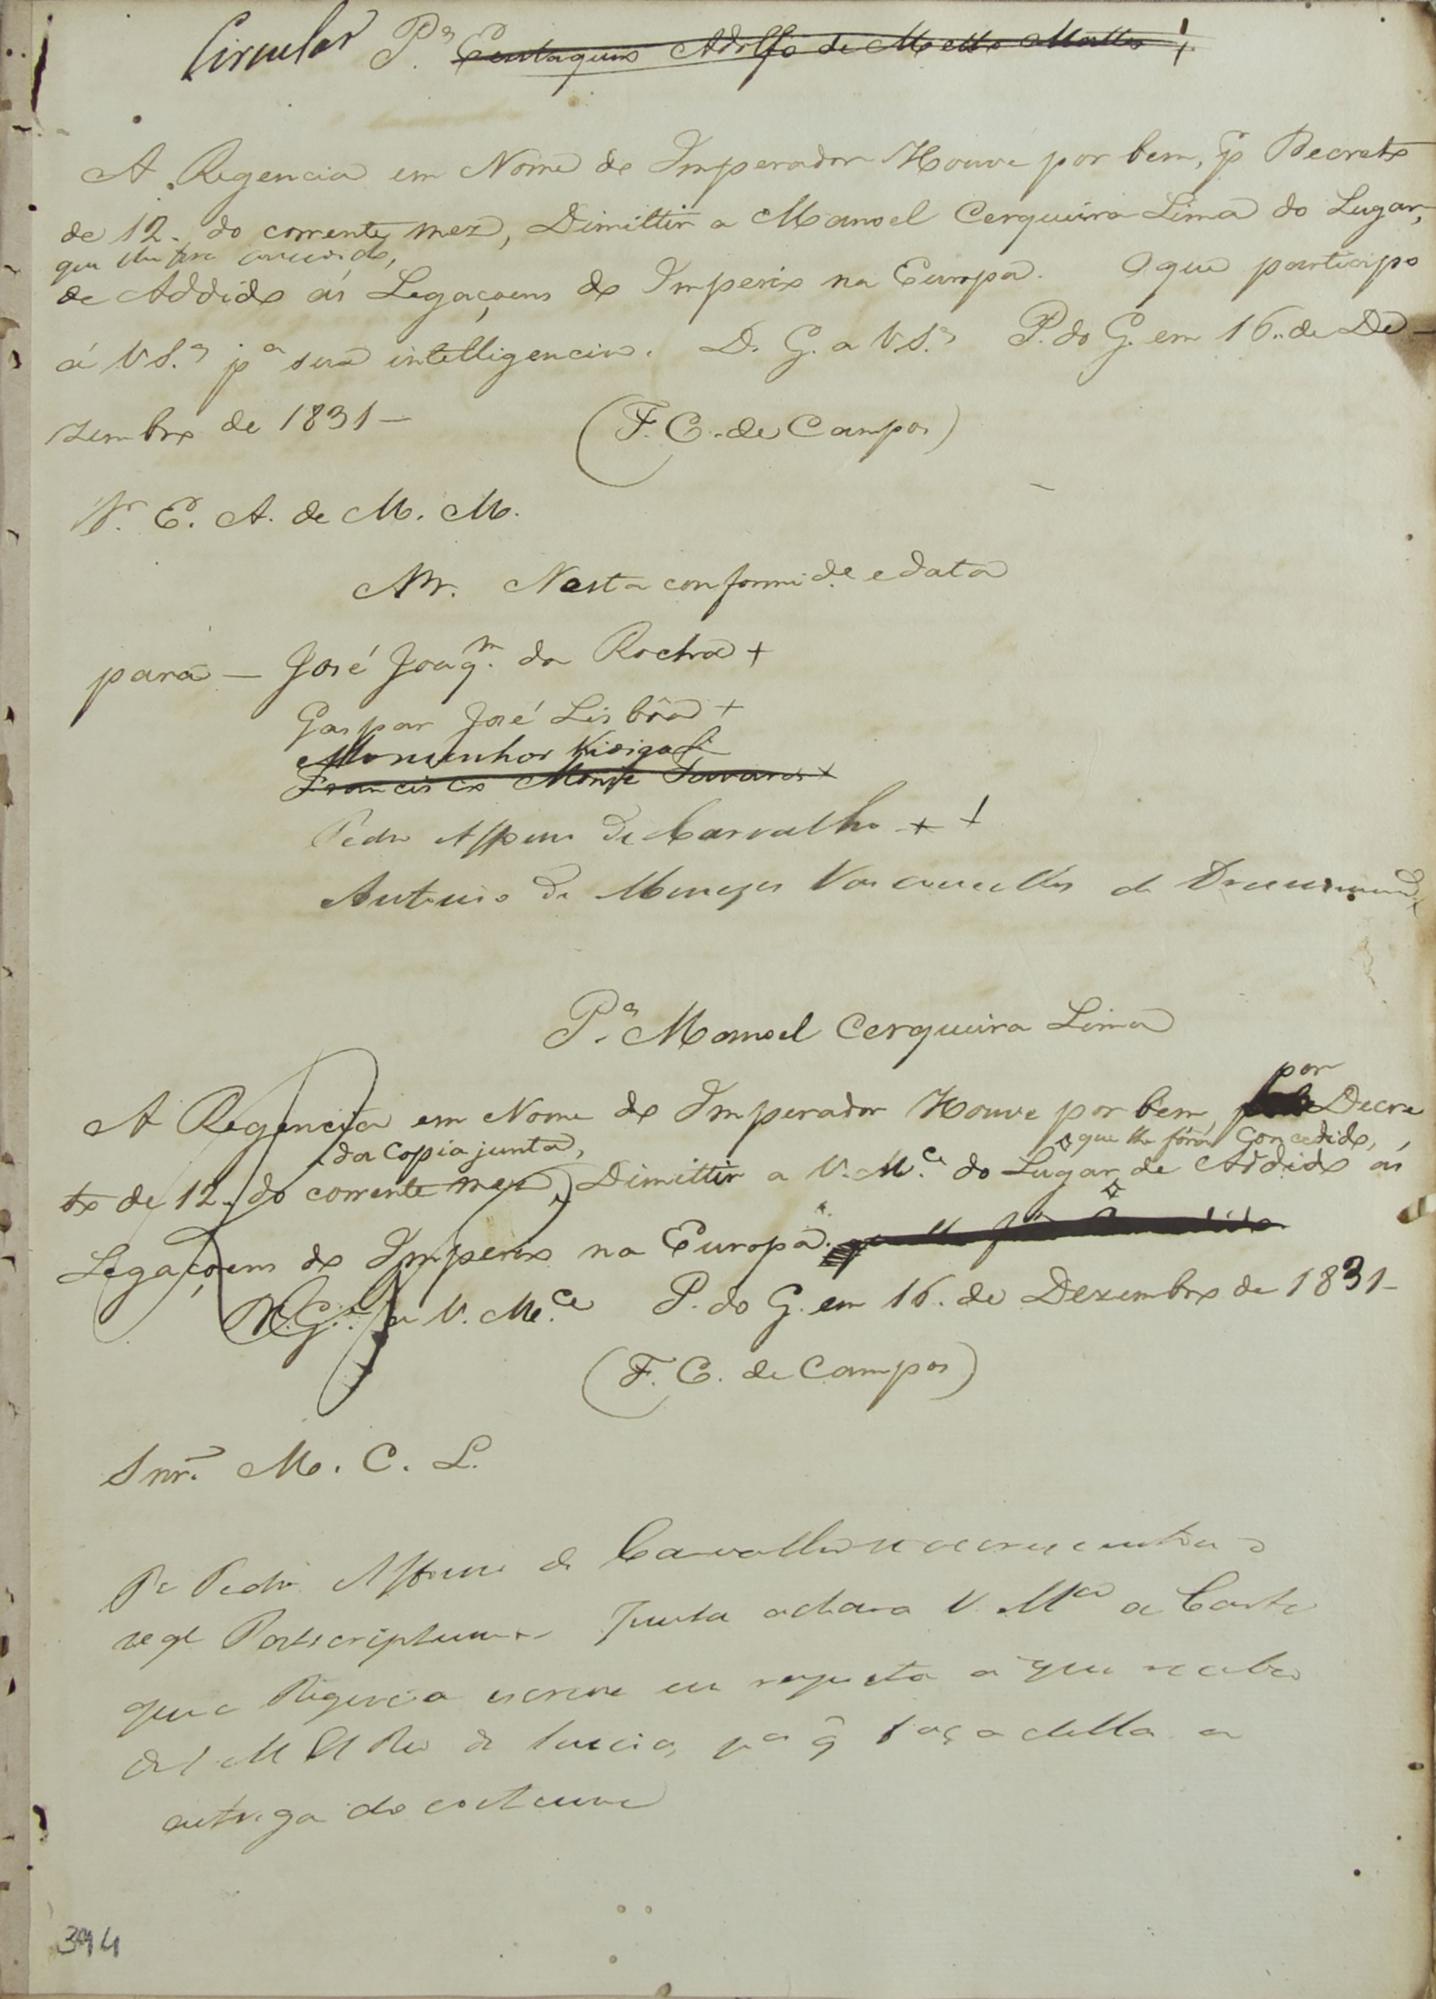 Circular P.ª Eustaquio Adolfo de Mello Mattos
A Regencia em Nome do Imperador Houve por bem, p Decreto
de 12. do corrente mez, Dimittir a Manoel Cerqueira Lima do Lugar,
que lhe fora concedido,
de Addido ás Legaçoens do Imperio na Europa. O que participo
á V S.ª pª sua intelligencia. D. G. a V.S.ª P. do G. em 16. de De-
zembro de 1831-
(F. C. de Campos)
Sr. E. A. de M. M.
Nesta conformid.e e data
para - José Joaq.m da Rocha +
Gaspar José Lisbôa +
Monsenhor Vidigal
Francisco Monte Tavares +
Pedro Affonso de Carvalho + +
Antonio de Menezes Vasconcellos de Drummond
P.ª Manoel Cerqueira Lima
A Regencia em Nome do Imperador Houve por bem por Decre
da Copia junta, que lhe fora concedido,
to de 12. do corrente mez, Dimittir a V. M.ce do Lugar de Addido ás
Legaçoens do Imperio na Europa. que lhe fora concedido
D. G.e a V. M.ce P. do G. em 16. de Dezembro de 1831-
(F. C. de Campos)
Snr. M. C. L.
Pª Pedro Affonso de Carvalho se accrescentará o
seg.te Postscriptum - Junta achará V. M.ce a Carta
que a Regencia escreve em resposta a que recebeo
de S. M. El Rei de Suecia, pª q̃ faça della a
entrega do costume
394